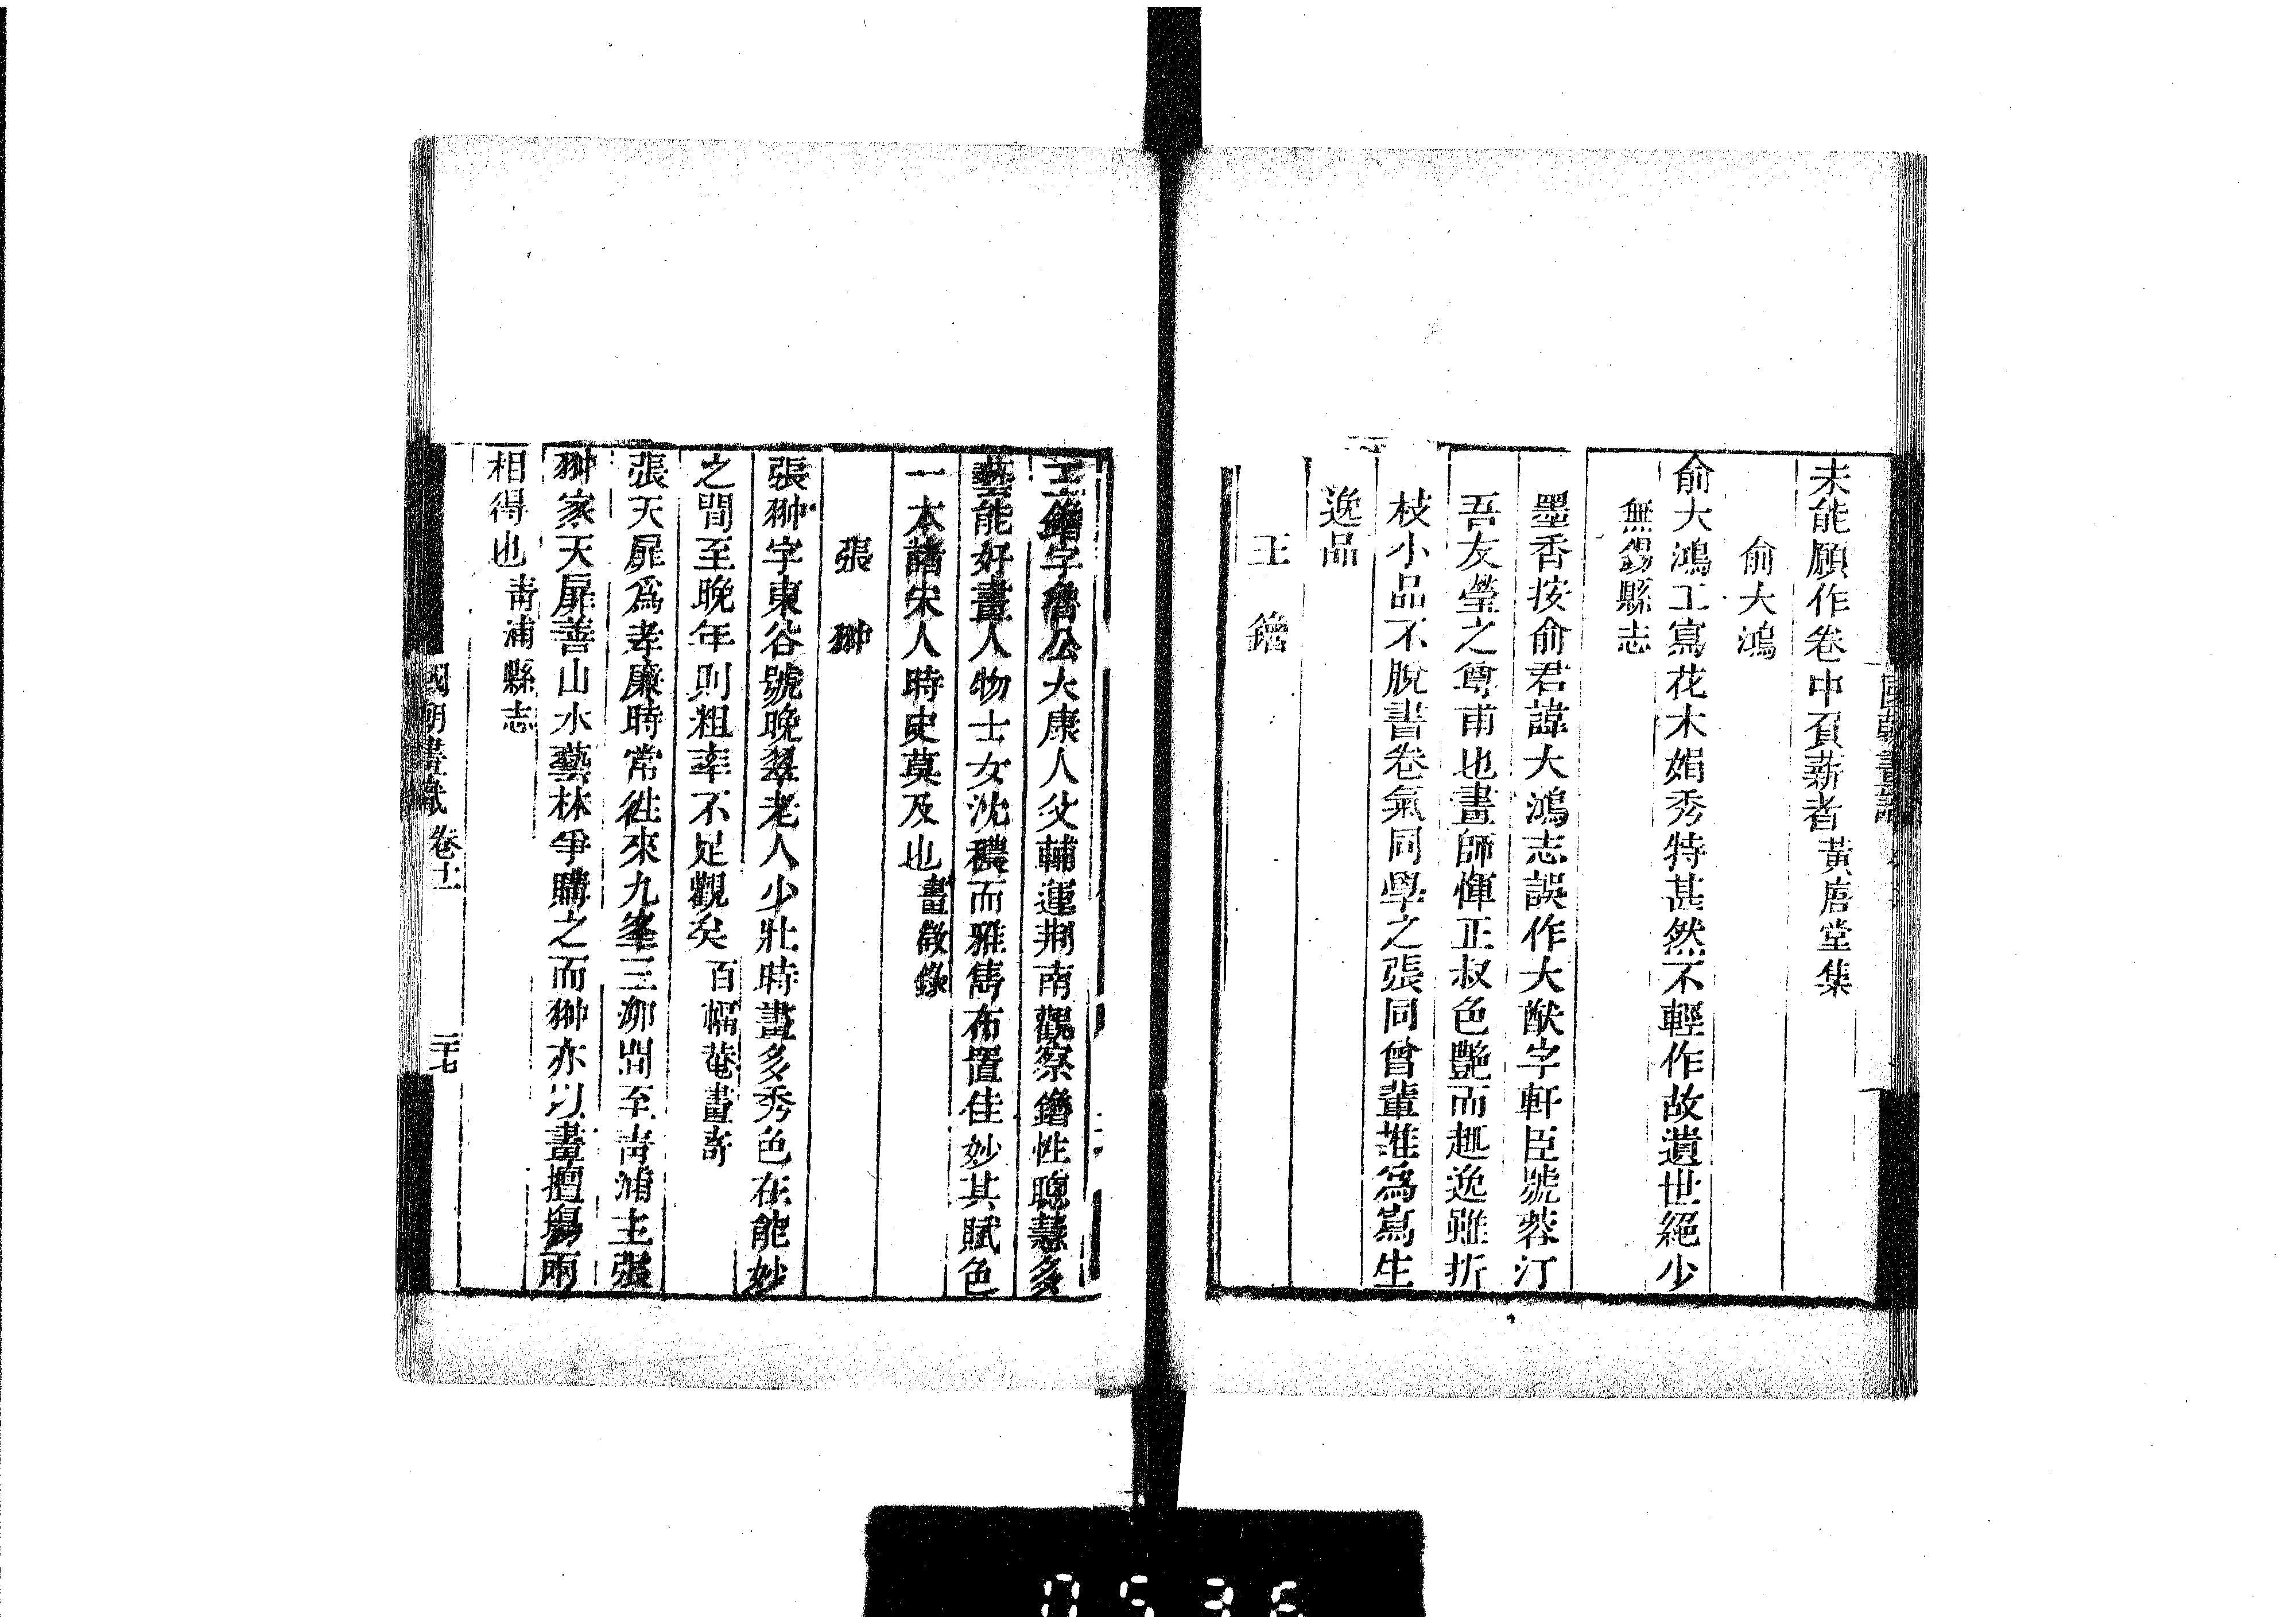 未能願作卷中負薪者黃唐堂集
俞大鴻
俞大鴻工寫花木娟秀特甚然不輕作故遺世絕少
無錫縣志
墨香按俞君諱大鴻志誤作大猷字軒臣號蓉汀
吾友瑩之尊甫也畫師惲正叔色艷而趣逸雖折
枝小品不脫書卷氣同學之張同曾輩推為寫生
逸品
王鐕
王鐕字魯公大康人父輔運荆南觀察鐕性聰慧多
藝能好畫人物士女沈穠而雅雋布置佳妙其賦色
一本諸宋人時史莫及也畫徵錄
張翀
張翀字東谷號晚翠老人少壯時畫多秀色在能妙
之間至晚年則粗率不足觀矣百幅菴畫寄
張天扉爲孝廉時常徃來九峯三泖間至青浦主張
翀家天扉善山水藝林爭購之而翀亦以畫擅場兩
相得也青浦縣志
國朝畫識 卷十一 二十七
0536